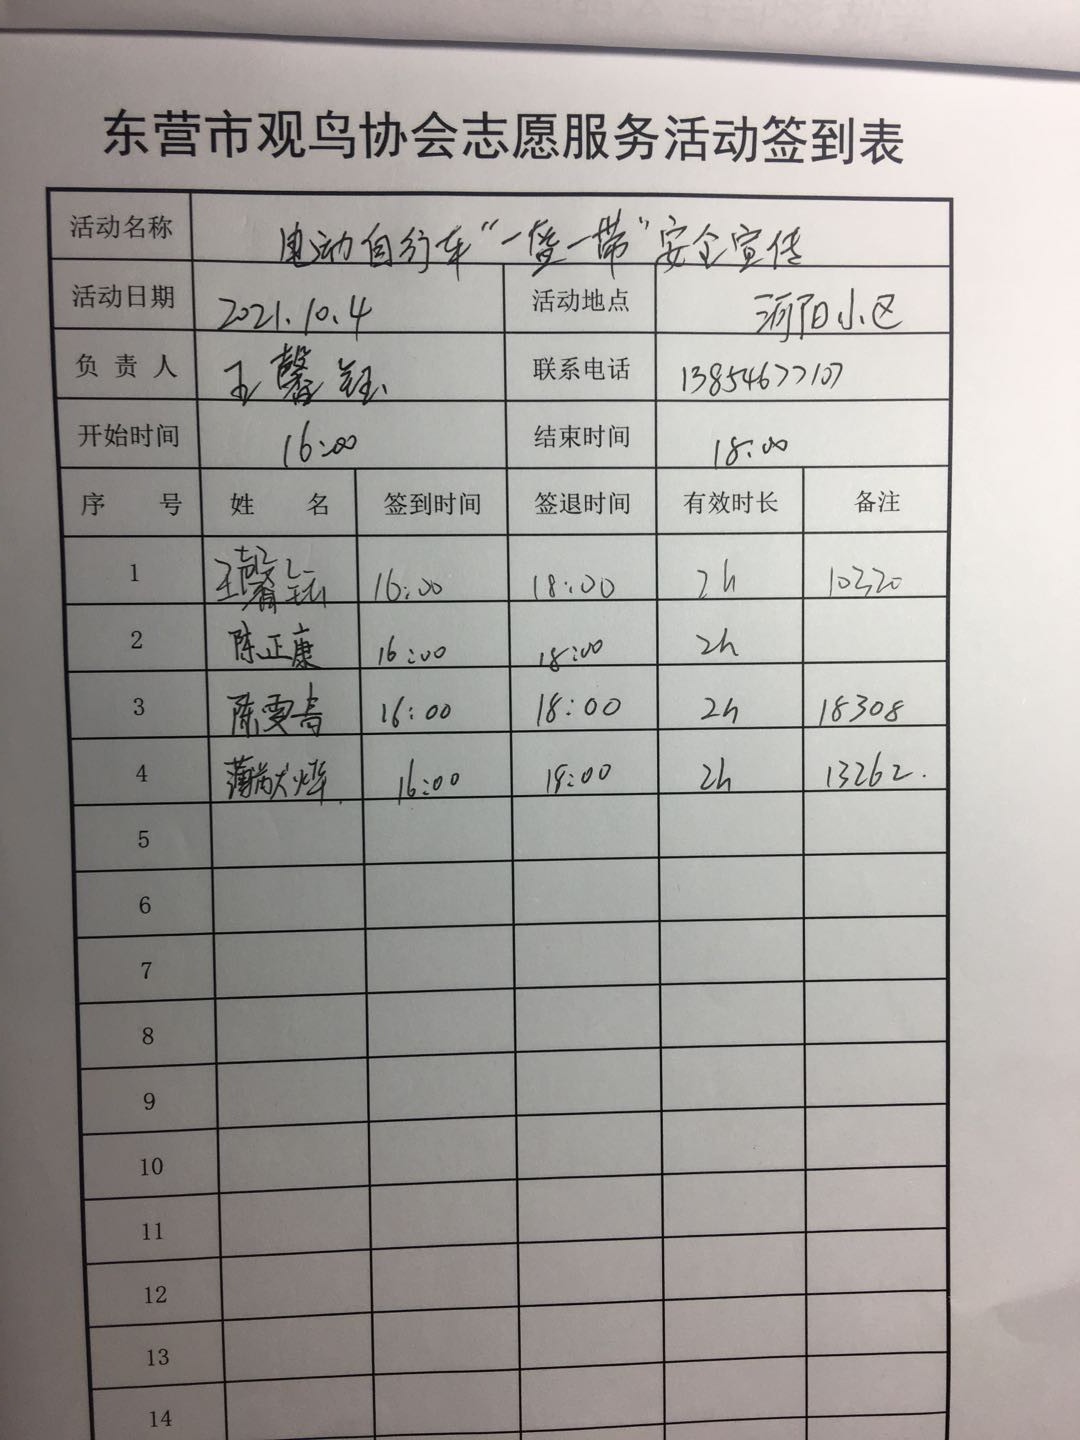 东营市观鸟协会志愿服务活动签到表
活动名称 电动自行车“一盔一带”安全宣传
活动日期 2021.10.4 活动地点 河阳小区
负责人 王馨钰 联系电话 13854677107
开始时间 16:00 结束时间 18:00
序号 姓名 签到时间 签退时间 有效时长 备注
1 王馨钰 16:00 18:00 2h 10320
2 陈正康 16:00 18:00 2h
3 陈雯 16:00 18:00 2h 18308
4 薄 烨 16:00 18:00 2h 13262.
5
6
7
8
9
10
11
12
13
14